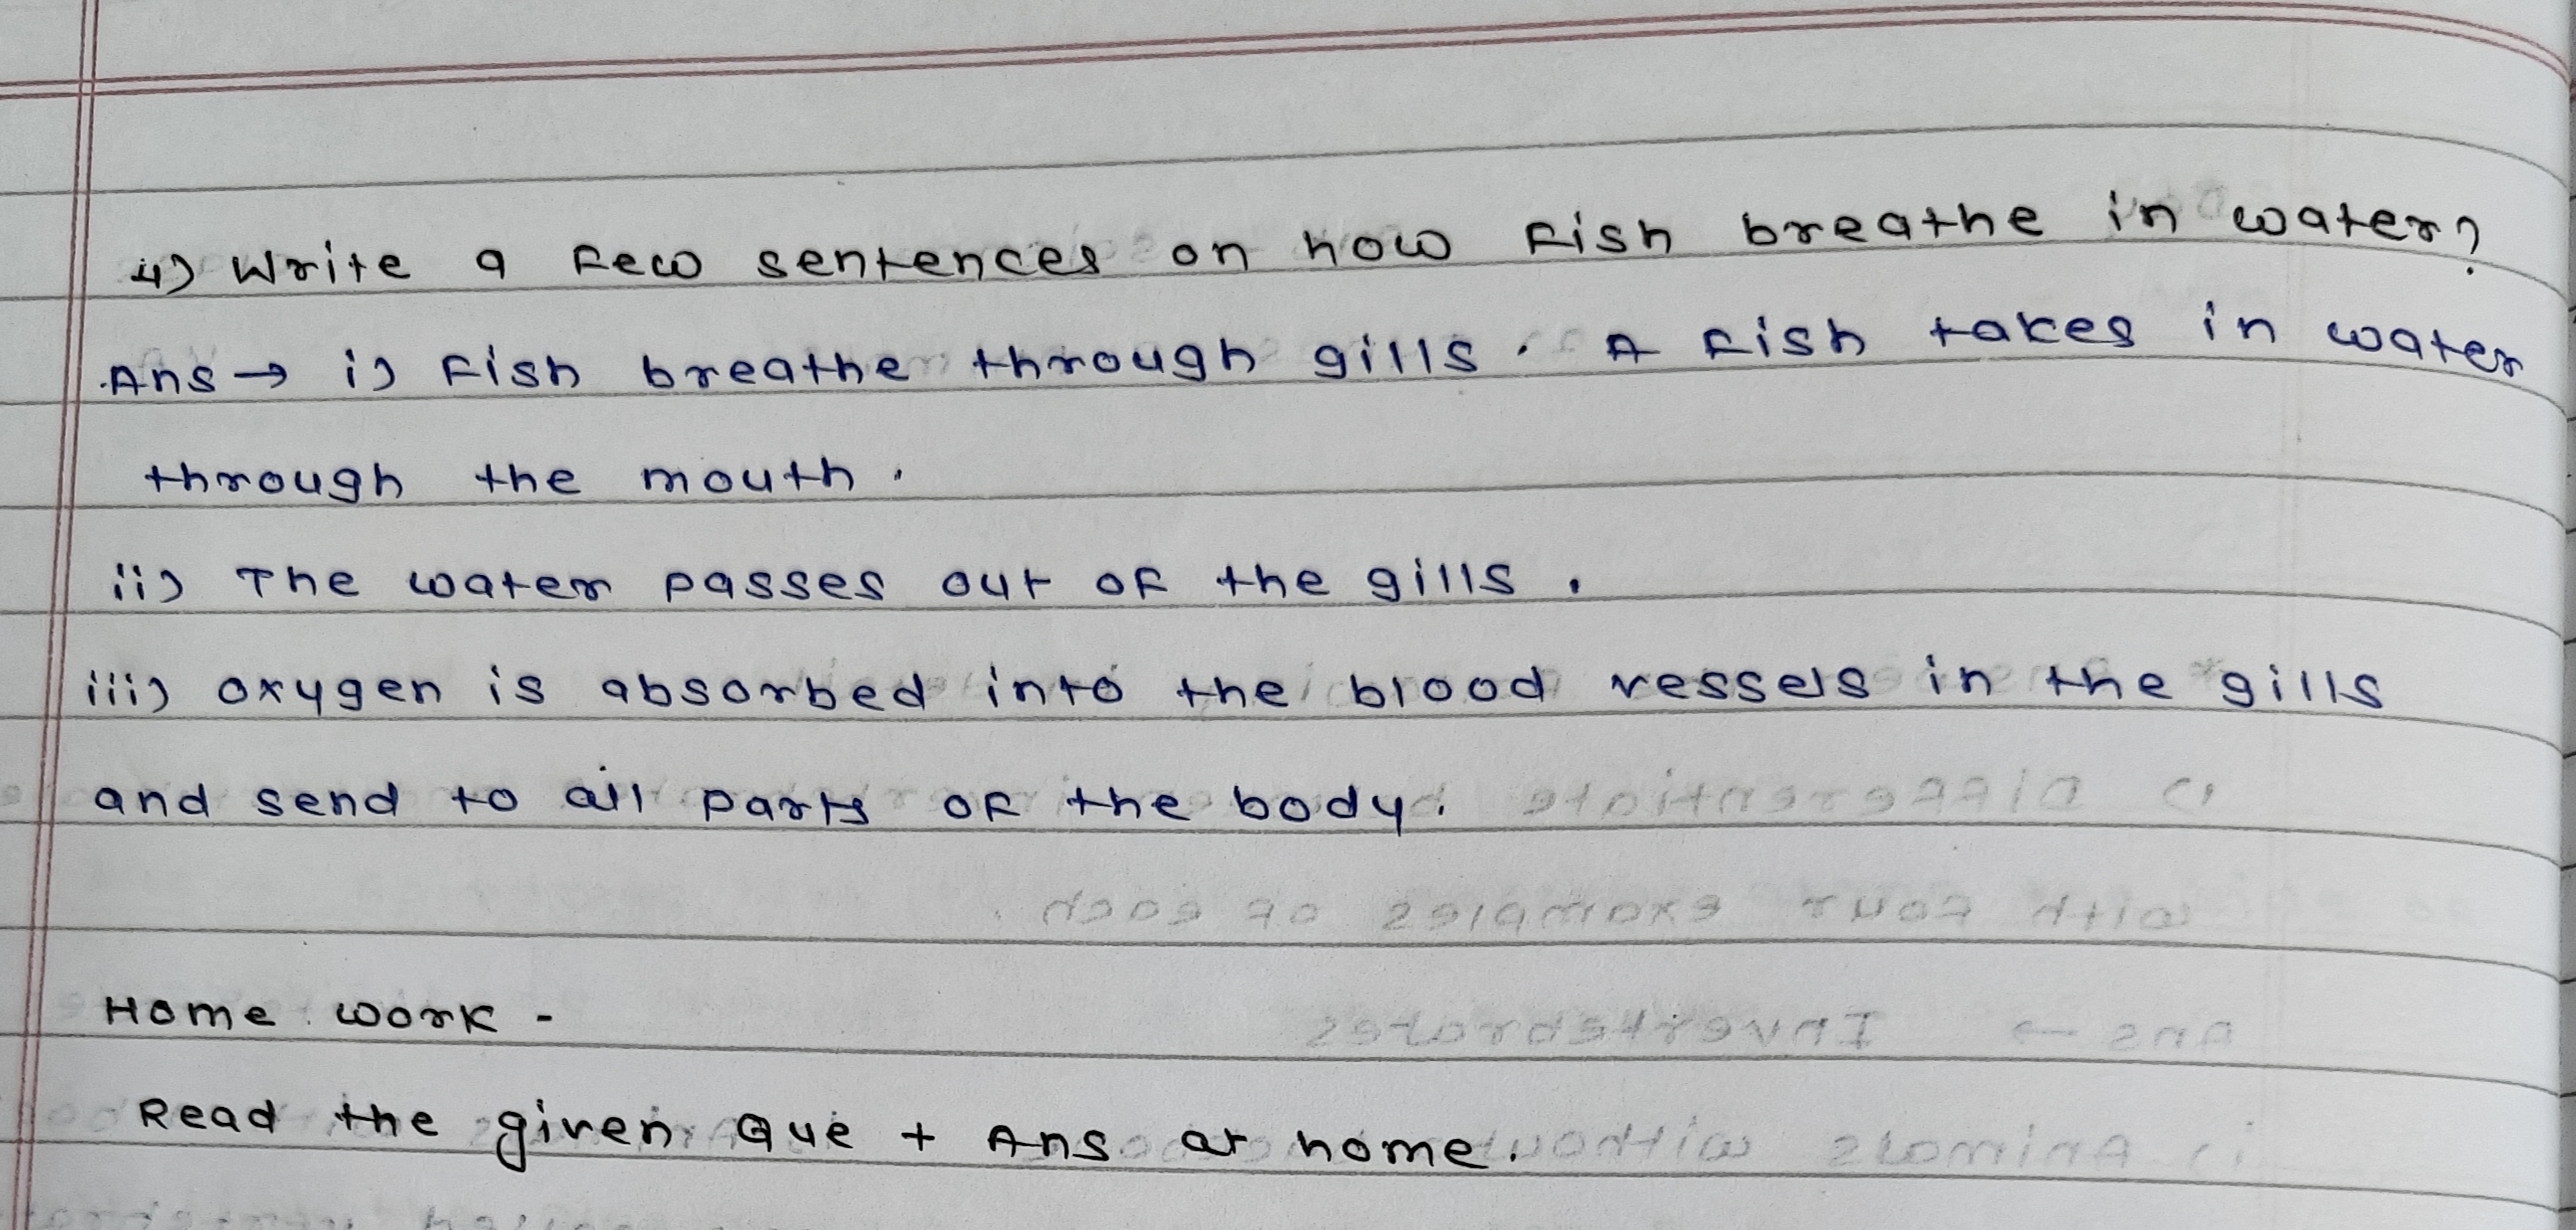 4) Write a few sentences on how fish breathe in water?
Ans → i) Fish breathe through gills. A fish takes in water
through the mouth.
ii) The water passes out of the gills.
iii) oxygen is absorbed into the blood vessels in the gills
and send to all parts of the body.
Home work -
Read the given Que + Ans at home.